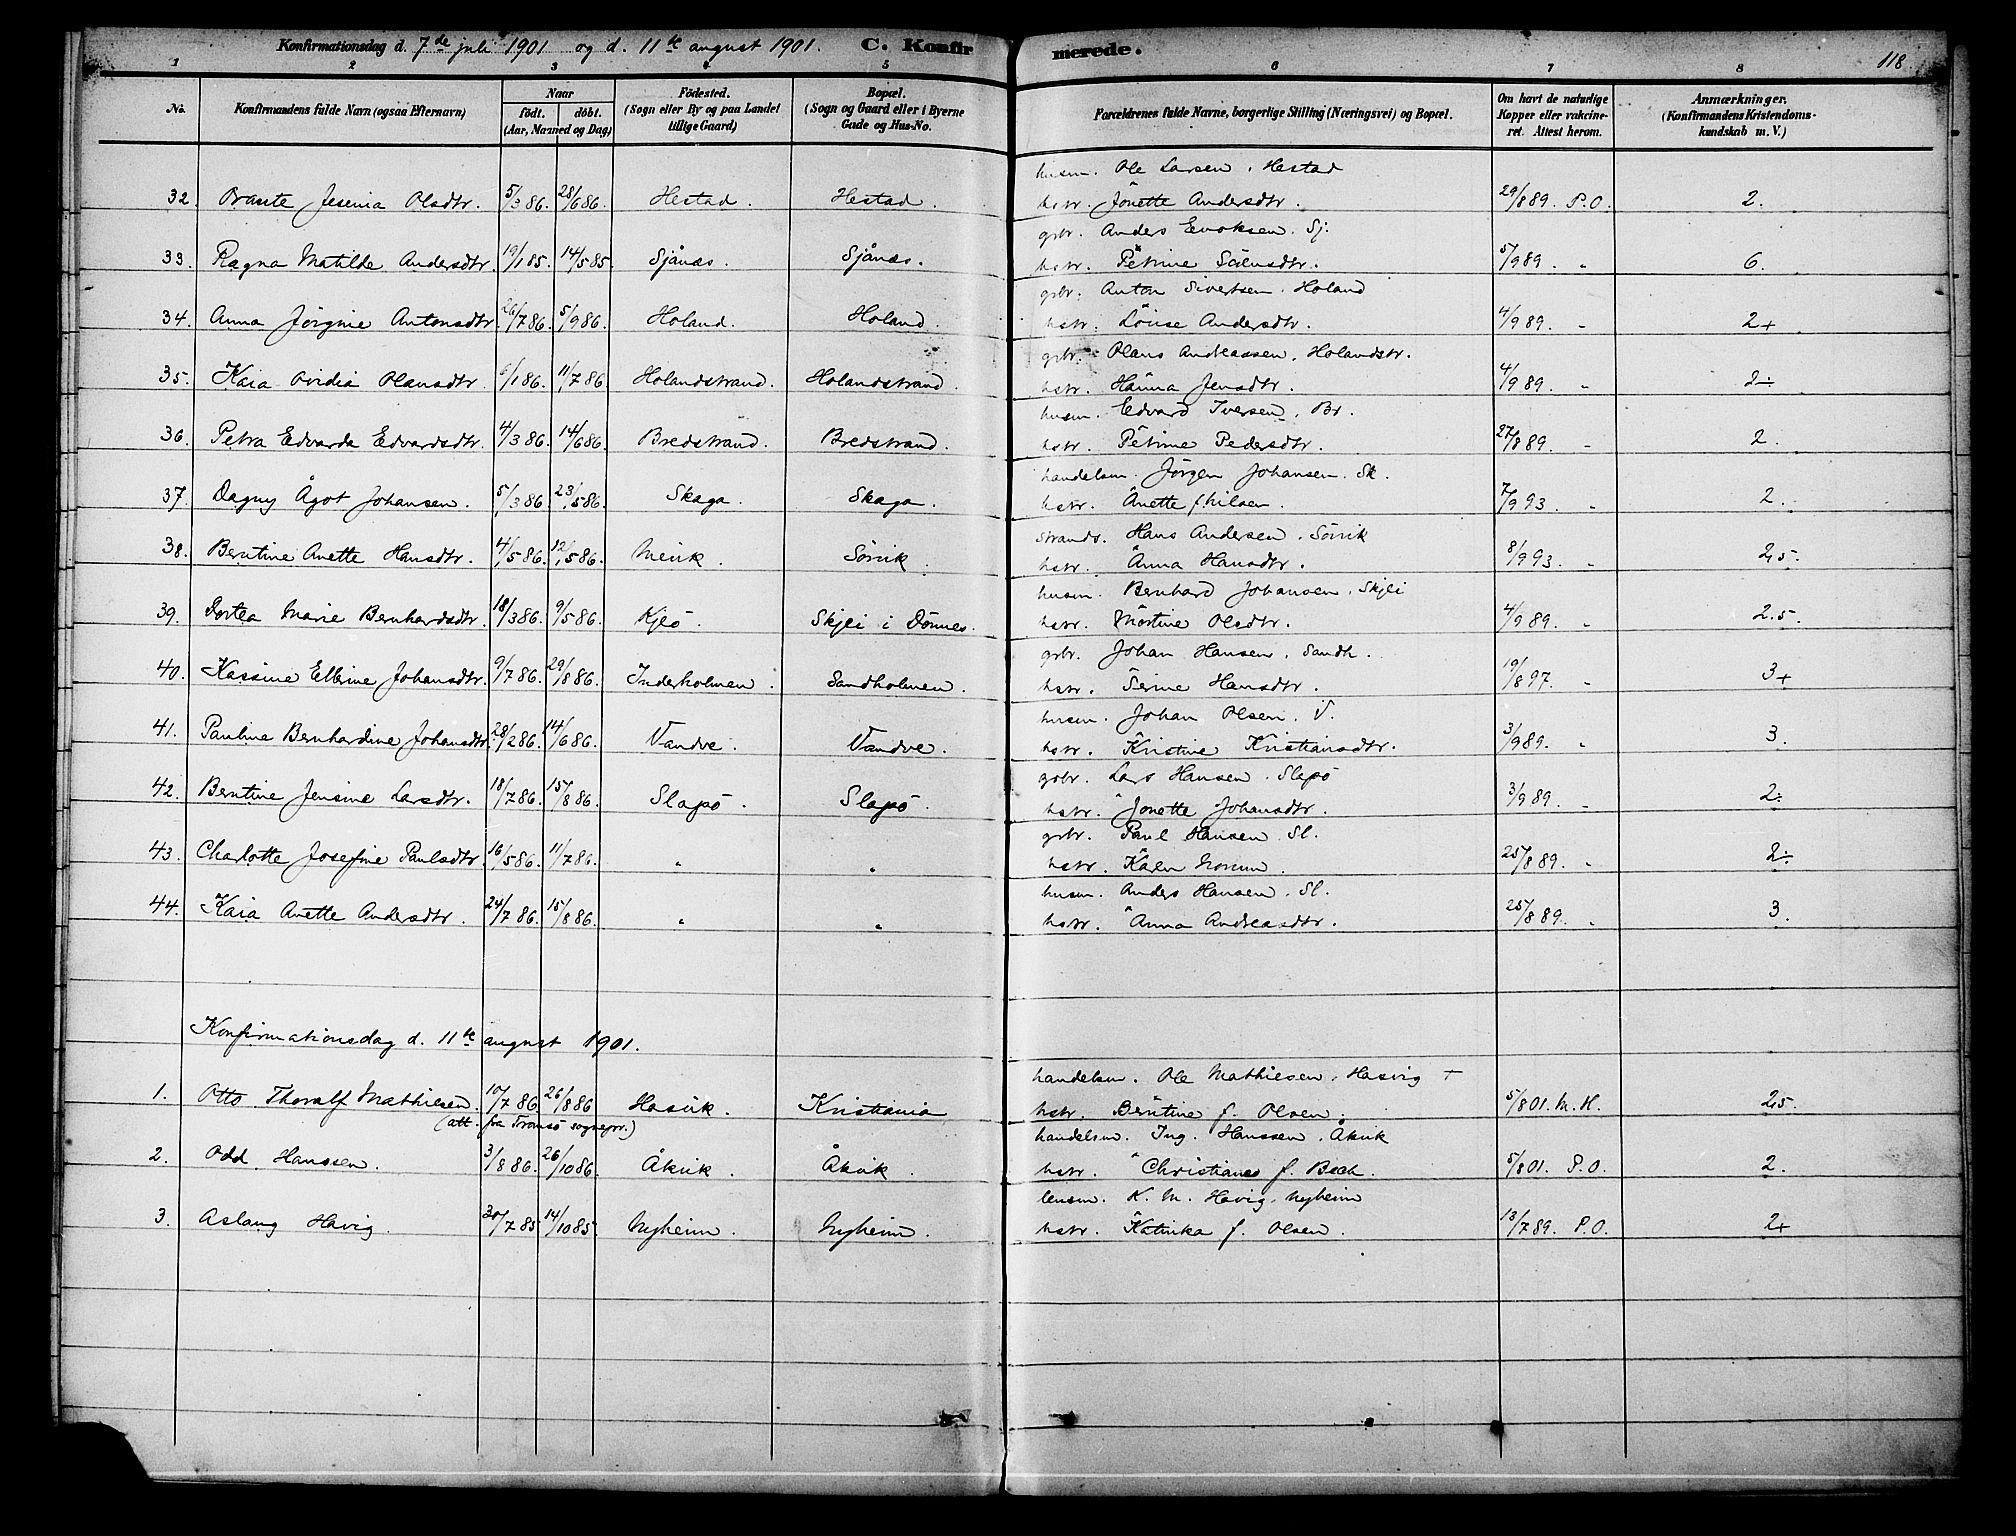 Konfirmationsdag d. 7de juli 1901 og d. 11te august 1901. C. Konfirmerede. 118
1 2 3 4 5 6 7 8
No. Konfirmandens fulde Navn (ogsaa Efternavn) Naar födt. döbt. (Aar, Maaned og Dag) Födested. (Sogn eller By og paa Landet tillige Gaard) Bopæl. (Sogn og Gaard eller i Byerne Gade og Hus-No. Forældrenes fulde Navne, borgerlige Stilling (Næringsvei) og Bopæl. Om havt de naturlige Kopper eller vakcineret. Attest herom. Anmærkninger. (Konfirmandens Kristendomskundskab m. V.)
husm. Ole Larsen, Hestad
32. Jesenia Olsdtr. 5/3 86. 28/6 86. Hestad. Hestad. hstr. Jonette Andersdtr. 29/8 89. P.O. 2.
grbr. Anders Enoksen. Sj.
33. Ragna Matilde Andersdtr. 19/1 85. 14/5 85. Sjånæs. Sjånæs. hstr. Petrine 5/9 89. " 6.
grbr. Anton Sivertsen. Holand
34. Anna Jørgine Antonsdtr. 26/7 86. 5/9 86. Holand. Holand. hstr. Lovise Andersdtr. 4/9 89. " 2+
grbr. Olaus Andreassen. Holandstr.
35. Kaia Ovidia Olausdtr. 6/1 86. 11/7 86. Holandstrand. Holandstrand. hstr. Hanna Jensdtr. 4/9 89. " 2÷
husm. Edvard Iversen, Br.
36. Petra Edvarda Edvardsdtr. 4/3 86. 14/6 86. Bredstrand. Bredstrand. hstr. Petrine Pedersdtr. 27/8 89. " 2.
handelsm. Jørgen Johansen. Sk.
37. Dagny Ågot Johansen. 5/3 86. 23/5 86. Skaga. Skaga. hstr. Anette f. Nilsen. 7/9 93. " 2.
strands. Hans Andersen. Sörvik
38. Berntine Anette Hansdtr. 4/5 86. 12/5 86. Sörvik. hstr. Anna Hansdtr. 8/9 93. " 2,5
husm. Bernhard Johansen. Skjei
39. Dortea Marie Bernhardsdtr. 18/3 86. 9/5 86. Kjeö. Skjei i Dönnes. hstr. Olsdtr. 4/9 89. " 2.5.
grbr. Johan Hansen. Sandh.
40. Kassine Johansdtr. 9/7 86. 29/8 86. Inderholmen. Sandholmen. hstr. Serine Hansdtr. 19/8 97. " 3+
husm. Johan Olsen. V.
41. Pauline Bernhardine Johansdtr. 28/2 86. 14/6 86. Vandve. Vandve. hstr. Kristine Kristiansdtr. 3/9 89. " 3.
gbr. Lars Hansen. Slapö
42. Berntine Jensine Larsdtr. 18/7 86. 15/8 86. Slapö. Slapö. hstr. Jonette Johansdtr. 3/9 89. " 2÷
grbr. Paul Hansen. Sl.
43. Charlotte Josefine Paulsdtr. 16/5 86. 11/7 86. " " hstr. Karen Norum. 25/8 89. " 2÷
husm. Anders Hansen. Sl.
44. Kaia Anette Andersdtr. 24/7 86. 15/8 86. " " hstr. Anna Andreasdtr. 25/8 89. " 3.
Konfirmationsdag d. 11te august 1901.
handelsm. Ole Mathiesen, Hasvig +
1. Otto Thoralf Mathiesen. 10/7 86. 26/8 86 Hasvik. Kristiania hstr. Berntine f. Olsen. 5/8 01. M.K. 2,5.
(att. fra Tromsö sognepr.)
handelsm. Ing. Hanssen. Åkvik
2. Odd Hanssen. 3/8 86. 26/10 86. Åkvik. Åkvik. hstr. Christiane f. Bech. 5/8 01. P.O. 2.
lensm. K. M. Havig, Nyheim
3. Aslaug Havig. 30/7 85 14/10 85. Nyheim. Nyheim. hstr. Katinka f. Olsen. 13/7 89. P.O. 2+